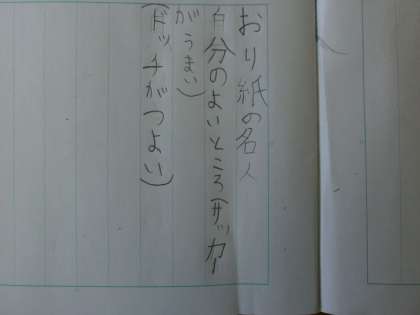 おり紙の名人
自分のよいところ(サッカー
がうまい)
(ドッチがつよい)